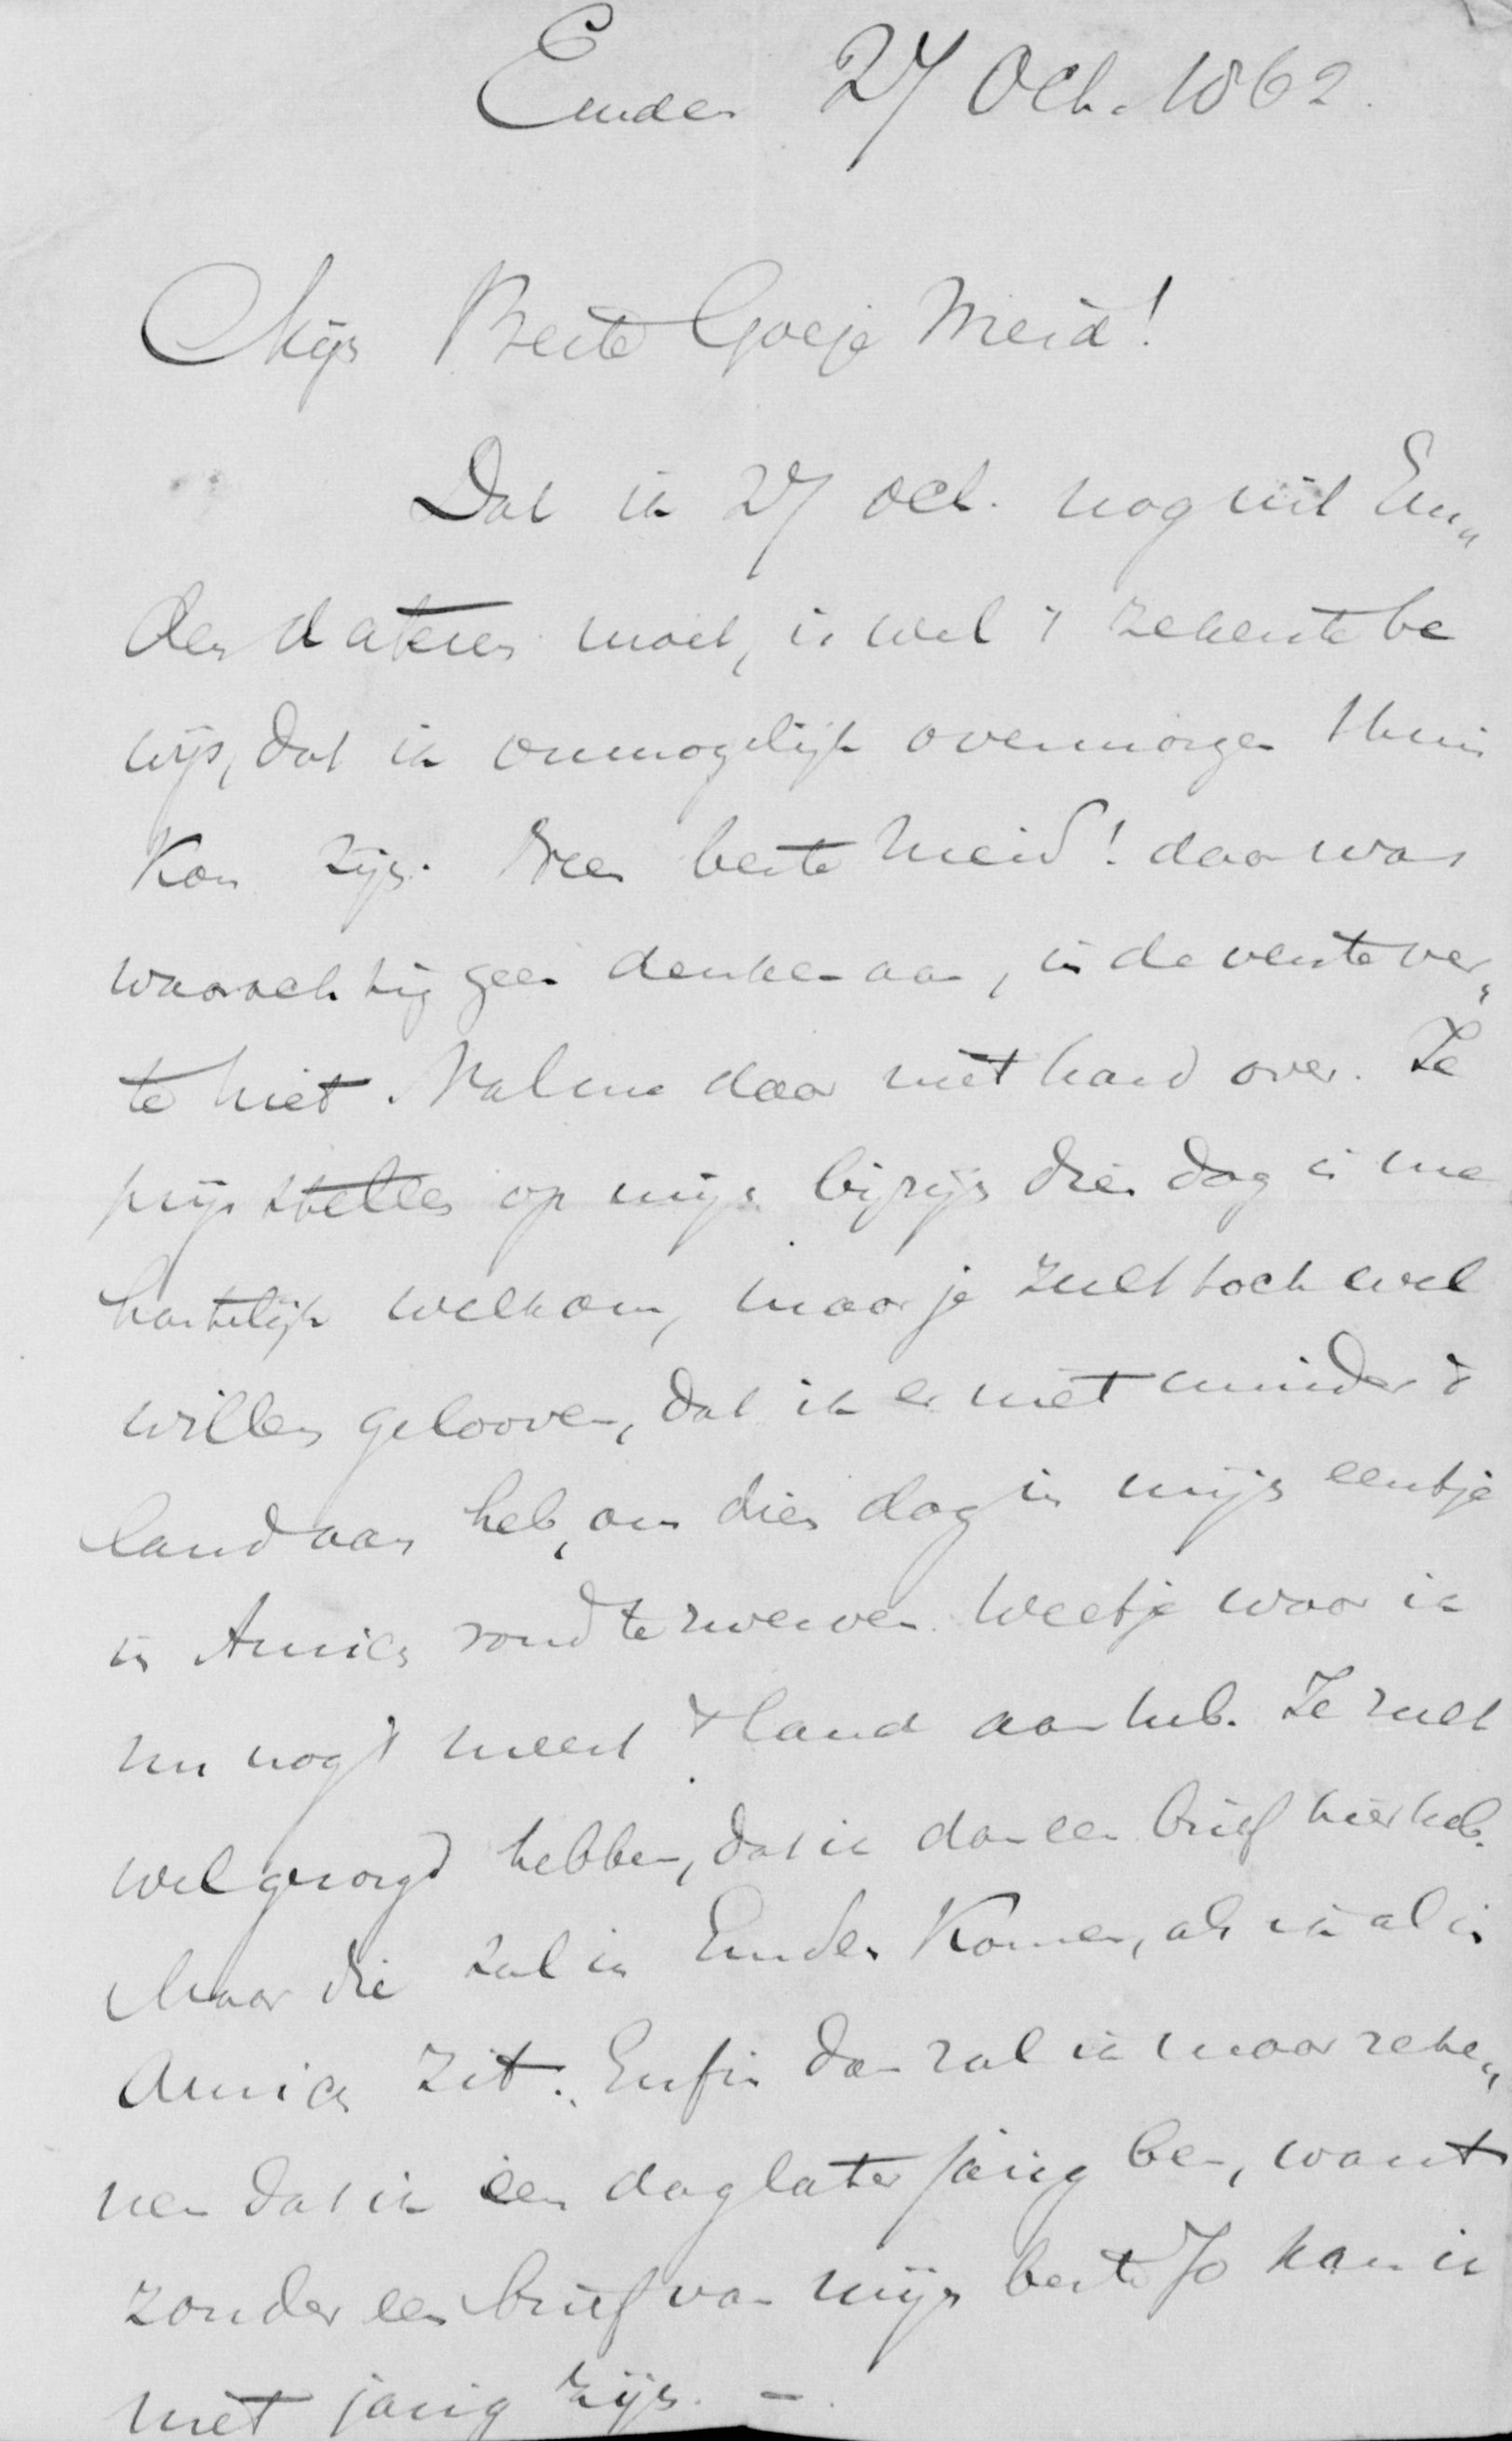 Emden 27 Oct. 1862.
Mijn Beste Goeje Meid!
Dat ik 27 Oct. nog uit Em„
den dateren moet, is wel 't zekerste be
wijs, dat ik onmogelijk overmorgen thuis
kon zijn. Neen beste meid! daar was
waarachtig geen denken aan, in de verste ver„
te niet. Val me daar niet hard over. Je
prijs stellen op mijn bijzijn dien dag is me
hartelijk welkom, maar je zult toch wel
willen gelooven, dat ik er niet minder 't
land aan heb, om dien dag in mijn eentje
in Amica rond te zwerven. Weet je waar ik
nu nog 't meest 't land aan heb. Je zult
wel gezorgd hebben, dat ik dan een brief hier heb.
Maar die zal in Emden komen, als ik al in
Amica zit. Enfin dan zal ik maar reke„
nen dat ik een dag later jarig ben, want
zonder een brief van mijn beste Jo kan ik
niet jarig zijn. –